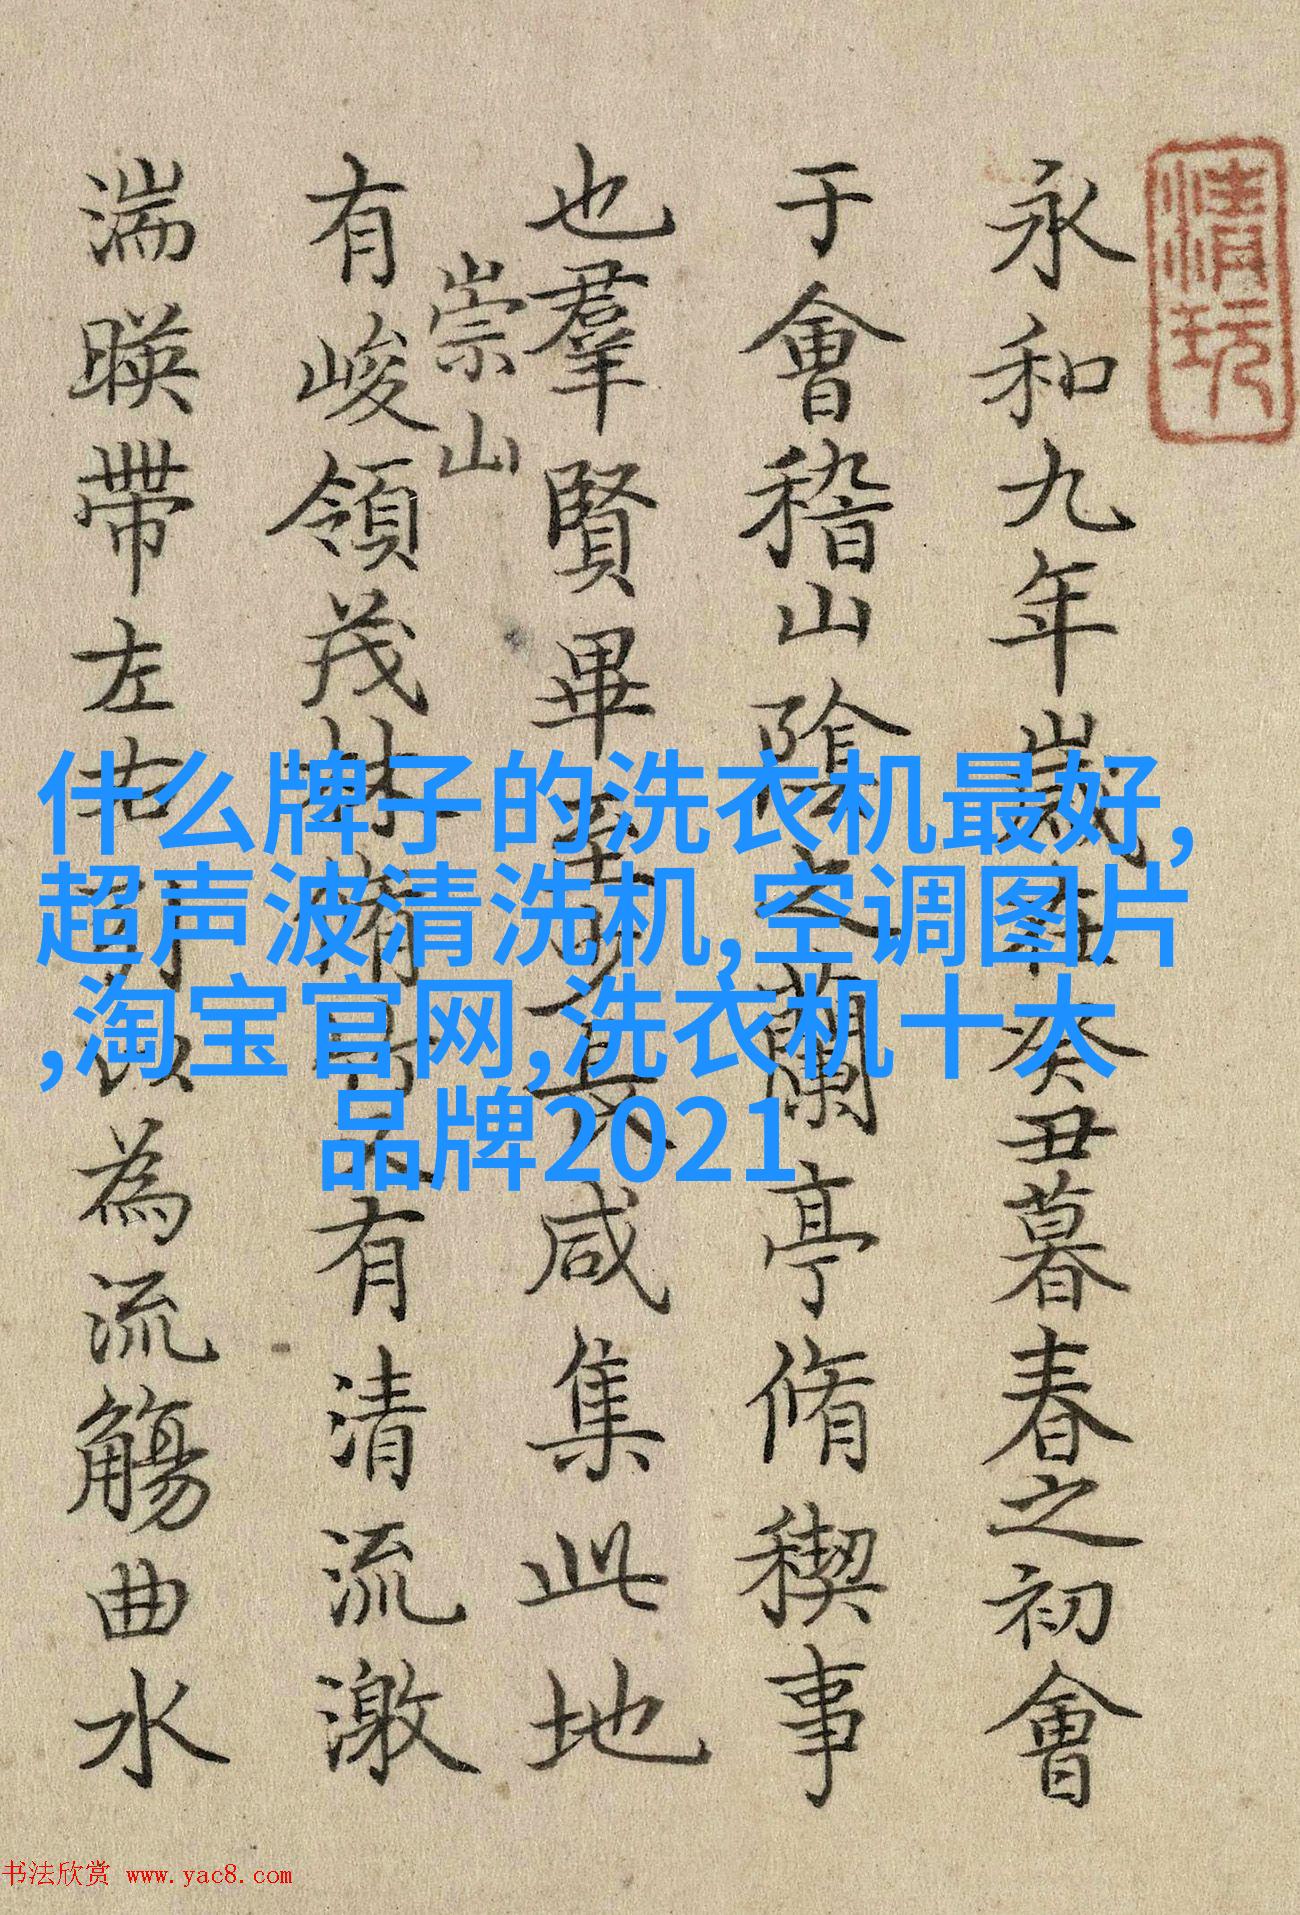 永和九年歲在癸丑暮春之初會
于會稽山陰之蘭亭脩稧事
也羣賢畢至少長咸集此地
崇山
有峻領茂林脩竹又有清流激
湍暎帶左右引以為流觴曲水
清玩
什么牌子的洗衣机最好,
超声波清洗机,空调图片
,淘宝官网,洗衣机十大
品牌2021
书法欣赏 www.yac8.com